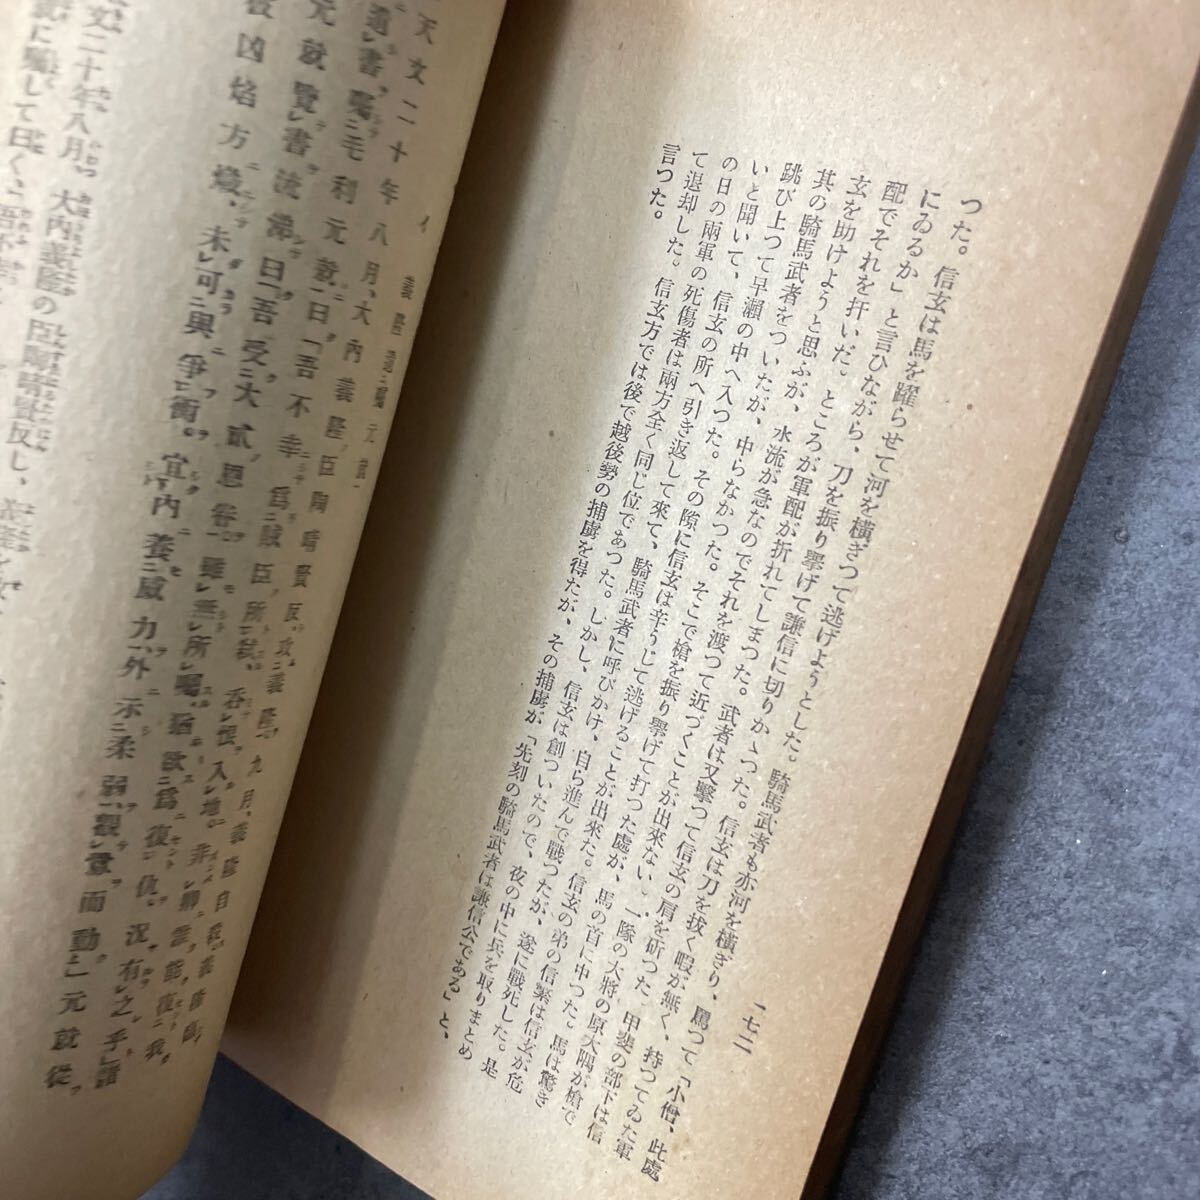 一七二
つた。信玄は馬を躍らせて河を橫ぎつて逃げようとした。騎馬武者も亦河を橫ぎり、罵つて「小僧、此處
にゐるか」と言ひながら、刀を振り擧げて謙信に切りかゝつた。信玄は刀を拔く暇が無く、持つてゐた軍
配でそれを扞いだ。ところが軍配が折れてしまつた。武者は又擊つて信玄の肩を斫つた 甲斐の部下は信
玄を助けようと思ふが、水流が急なのでそれを渡つて近づくことが出來ない。一隊の大將の原大隅が槍で
其の騎馬武者をついたが、中らなかつた。そこで槍を振り擧げて打つた處が、馬の首に中つた。馬は驚き
跳び上つて早瀨の中へ入つた。その隙に信玄は辛うじて逃げることが出來た。信玄の弟の信繁は信玄が危
いと聞いて、信玄の所へ引き返して來て、騎馬武者に呼びかけ、自ら進んで戰つたが、遂に戰死した。是
の日の兩軍の死傷者は兩方全く同じ位であつた。しかし、信玄は創ついたので、夜の中に兵を取りまとめ
て退却した。信玄方では後で越後勢の捕虜を得たが、その捕虜が「先刻の騎馬武者は謙信公である」と、
言つた。
天文二十年八月、大內義隆臣陶晴賢反、攻義隆。九月、義隆自殺。義隆臨
遺書囑毛利元就曰「吾不幸爲賊臣所弑、呑恨入地。非卿誰能復我
元就覽書流涕曰「吾受大貳恩眷雖無所囑、猶欲爲復仇。況有之乎」諸
凶焰方熾、未可與爭衡。宜內養威力、外示柔弱、觀釁而動」元就從
文二十年八月、大內義隆の臣陶晴賢反し、義隆を攻